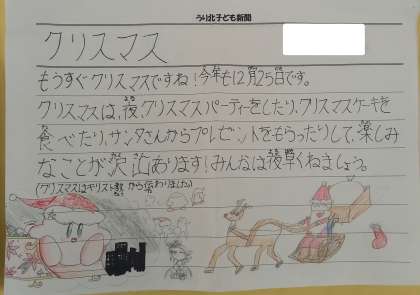 うり北子ども新聞
クリスマス
もうすぐクリスマスですね!今年も12月25日です。
クリスマスは、夜、クリスマスパーティーをしたり、クリスマスケーキを
食べたり、サンタさんからプレゼントをもらったりして、楽しみ
なことが沢山あります!みんなは夜早くねましょう。
(クリスマスはキリスト教から伝わりました)